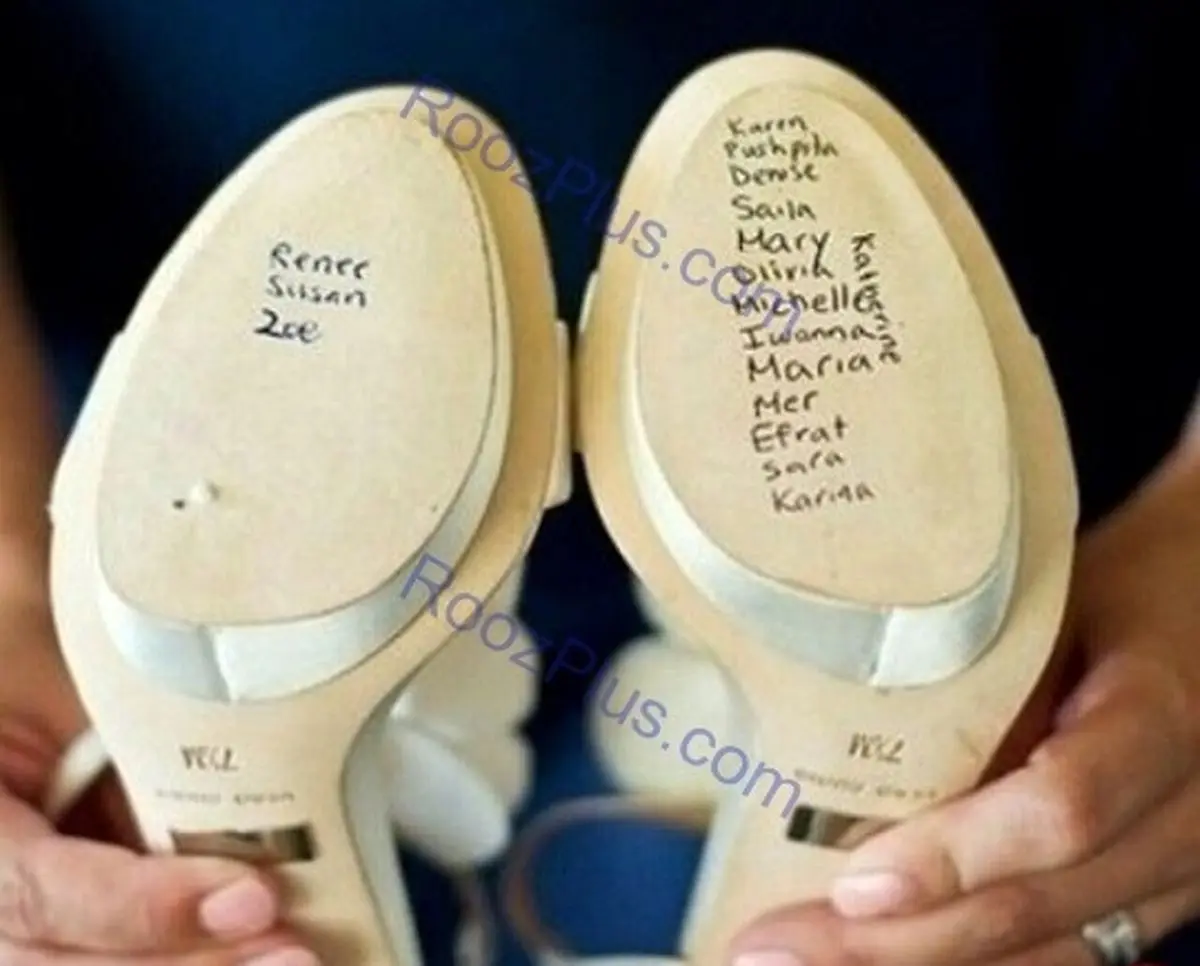 Renee
Susan
Zoe
Karen
Pushpita
Denise
Saila
Mary
Olivia
Michelle
Iwanna
Maria
Mer
Efrat
Sara
Karina
Katerina
RoozPlus.com
RoozPlus.com